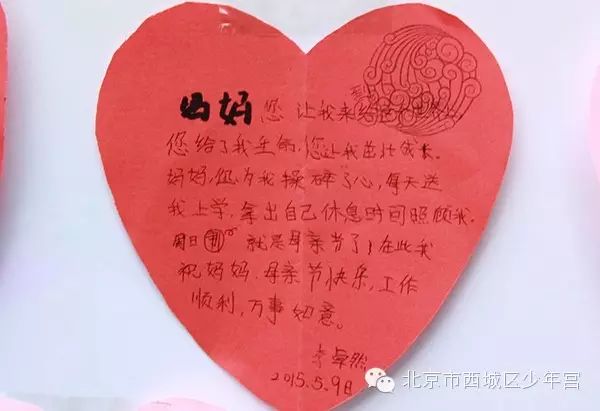 妈妈 您 让我来给这个世
您给了我生命,您让我茁壮成长。
妈妈,您为我操碎了心,每天送
我上学,拿出自己休息时间照顾我。
周日 就是母亲节了!在此我
祝妈妈,母亲节快乐,工作
顺利,万事如意。
李卓然
2015.5.9日
北京市西城区少年宫